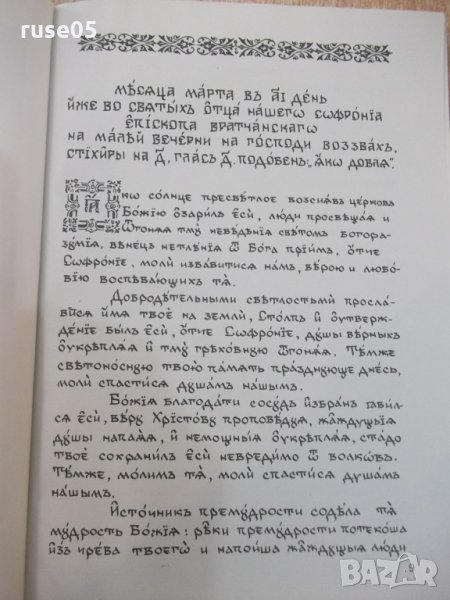 ruse05
Мѣ́сѧца ма́рта въ а҃і де́нь
и҆́же во свѧты́хъ ѻ҆тца̀ на́шегѡ сѡфро́нїа
є҆пі́скопа вратча́нскагѡ
на ма́лѣй вече́рни на го́споди воззва́хъ,
стїхи̑ры на д҃, гла́съ д҃. подо́бенъ: „ꙗ҆́кѡ до́блѧ“.
Ꙗ҆́кѡ со́лнце пресвѣ́тлое возсїѧ́въ це́рковь
Бо́жїю ѡ҆зари́лъ є҆сѝ, лю́ди просвѣща́ѧ и
ѿгонѧ́ѧ тмꙋ̀ невѣ́дѣнїѧ свѣ́томъ богора-
зꙋ́мїѧ, вѣне́цъ нетлѣ́нїѧ ѿ Бо́га прїи́мъ, ѻ҆́тче
Сѡфро́нїе, молѝ изба́витисѧ на́мъ, вѣ́рою и любо́-
вїю воспѣва́ющихъ тѧ̀.
Добродѣ́тельными свѣ́тлостьми просла́-
висѧ и҆́мѧ твоѐ на землѝ, Сто́лпъ и҆ ѹ҆твержд-
де́нїе бы́лъ є҆сѝ, ѻ҆́тче Сѡфро́нїе, дꙋ́шы вѣ́рныхъ
ѹ҆крѣплѧ́ѧ и҆ тмꙋ̀ грѣхо́внꙋю ѿгонѧ́ѧ. Тѣ́мже
свѣтоно́снꙋю твою̀ па́мѧть пра́зднꙋюще дне́сь,
молѝ спасти́сѧ дꙋша́мъ на́шымъ.
Бо́жїѧ благода́ти сосꙋ́дъ избра́нъ ꙗ҆ви́лсѧ
є҆сѝ, вѣ́рꙋ Хрїсто́вꙋ проповѣ́дꙋѧ, жа́ждꙋщыѧ
дꙋ́шы напаѧ́ѧ, и҆ немощны́ѧ ѹ҆крѣплѧ́ѧ, ста́до
твоѐ сохрани́лъ є҆сѝ невреди́мо ѿ волкѡ́въ.
Тѣ́мже, мо́лимъ тѧ̀, молѝ спасти́сѧ дꙋша́мъ
на́шымъ.
И҆сто́чникъ премꙋ́дрости содѣ́ла тѧ̀
мꙋ́дрость Бо́жїѧ: рѣ́ки премꙋ́дрости потеко́ша
и҆зъ чре́ва твоегѡ̀ и҆ напои́ша жа́ждꙋщыѧ лю́ди
5
BAZAR
bg